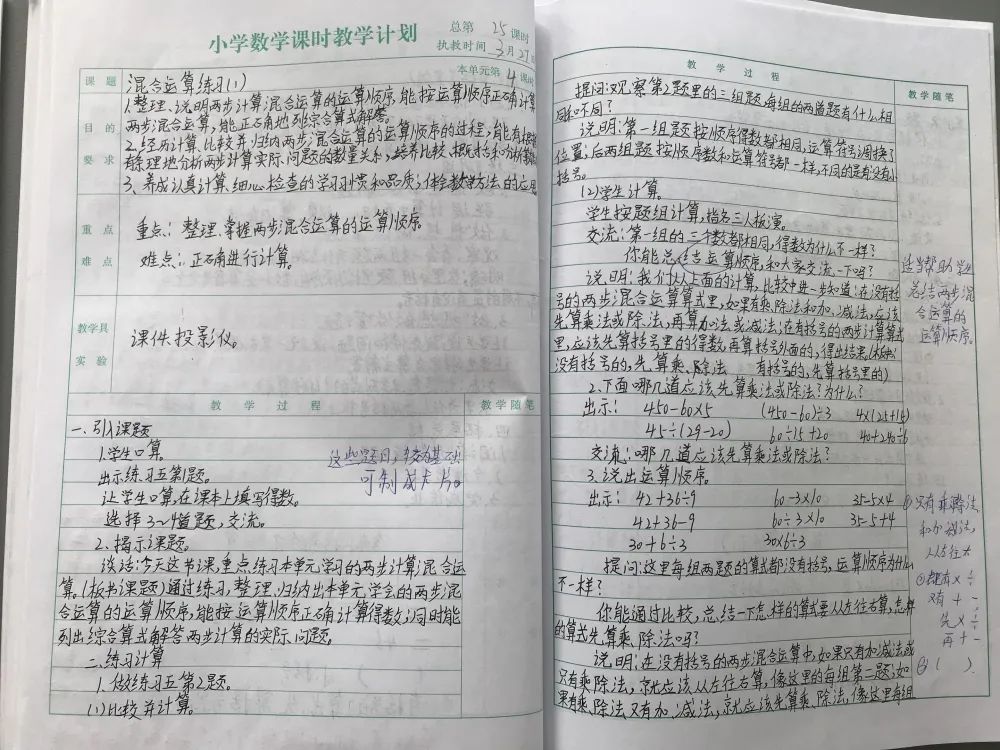 小学数学课时教学计划
总第 25 课时
执教时间 3月27日
本单元第 4 课时
课题 混合运算练习(1)
目的要求
1.整理、说明两步计算混合运算的运算顺序,能按运算顺序正确计算
两步混合运算,能正确地列综合算式解答。
2.经历计算、比较并归纳两步混合运算的运算顺序的过程,能有根据
有条理地分析两步计算实际问题的数量关系,培养比较、概括和分析
3、养成认真计算、细心检查的学习习惯和品质,体会数学方法的应用
重点难点
重点:整理、掌握两步混合运算的运算顺序。
难点:正确进行计算。
教学具实验
课件、投影仪。
教学过程 教学随笔
一、引入课题
1.学生口算。
出示练习五第1题。
让学生口算,在课本上填写得数。
选择3~4道题,交流。
2.揭示课题。
谈话:今天这节课,重点练习本单元学习的两步计算混合运
算。(板书课题)通过练习,整理、归纳出本单元学会的两步混
合运算的运算顺序,能按运算顺序正确计算得数;同时能
列出综合算式解答两步计算的实际问题。
二、练习计算
1.做练习五第2题。
(1)比较并计算。
这些题目,较为基础
可制成卡片。
教学过程 教学随笔
提问:观察第2题里的三组题,每组的两道题有什么相
同和不同?
说明:第一组题按顺序得数都相同,运算符号调换了
位置;后两组题按顺序数和运算符号都一样,不同的是有没有小
括号。
(2)学生计算。
学生按题组计算,指名三人板演。
交流:第一组的三个数都相同,得数为什么不一样?
你能总结出运算顺序,和大家交流一下吗?
说明:我们从上面的计算、比较中进一步知道:在没有括
号的两步混合运算算式里,如果有乘、除法和加、减法,应该
先算乘法或除法,再算加法或减法;在有括号的两步计算算式
里,应该先算括号里的得数,再算括号外面的,得出结果。(板书:
没有括号的,先算乘、除法 有括号的,先算括号里的)
2.下面哪几道应该先算乘法或除法?为什么?
出示: 450-60×5 (450-60)÷3 4×(25+15)
45÷(29-20) 60÷15+20 40+240÷6
交流:哪几道应该先算乘法或除法?
3.说出运算顺序。
出示: 42+36÷9 60-3×10 35-5×4
42+36-9 60÷3×10 35-5+4
30+6÷3 30×6÷3
提问:这里每组两题的算式都没有括号,运算顺序为什么
不一样?
你能通过比较,总结一下怎样的算式要从左往右算,怎样
的算式先算乘、除法吗?
说明:在没有括号的两步混合运算中,如果只有加减法或
只有乘、除法,就应该从左往右算,像这里的每组第二题;如
果有乘、除法又有加、减法,就应该先算乘、除法,像这里每组
适当帮助学生
总结两步混
合运算的
运算顺序。
①只有乘除法,
和加减法,
从左往右
②既有 × ÷
又有 + -
先 × ÷
再 + -
③( )